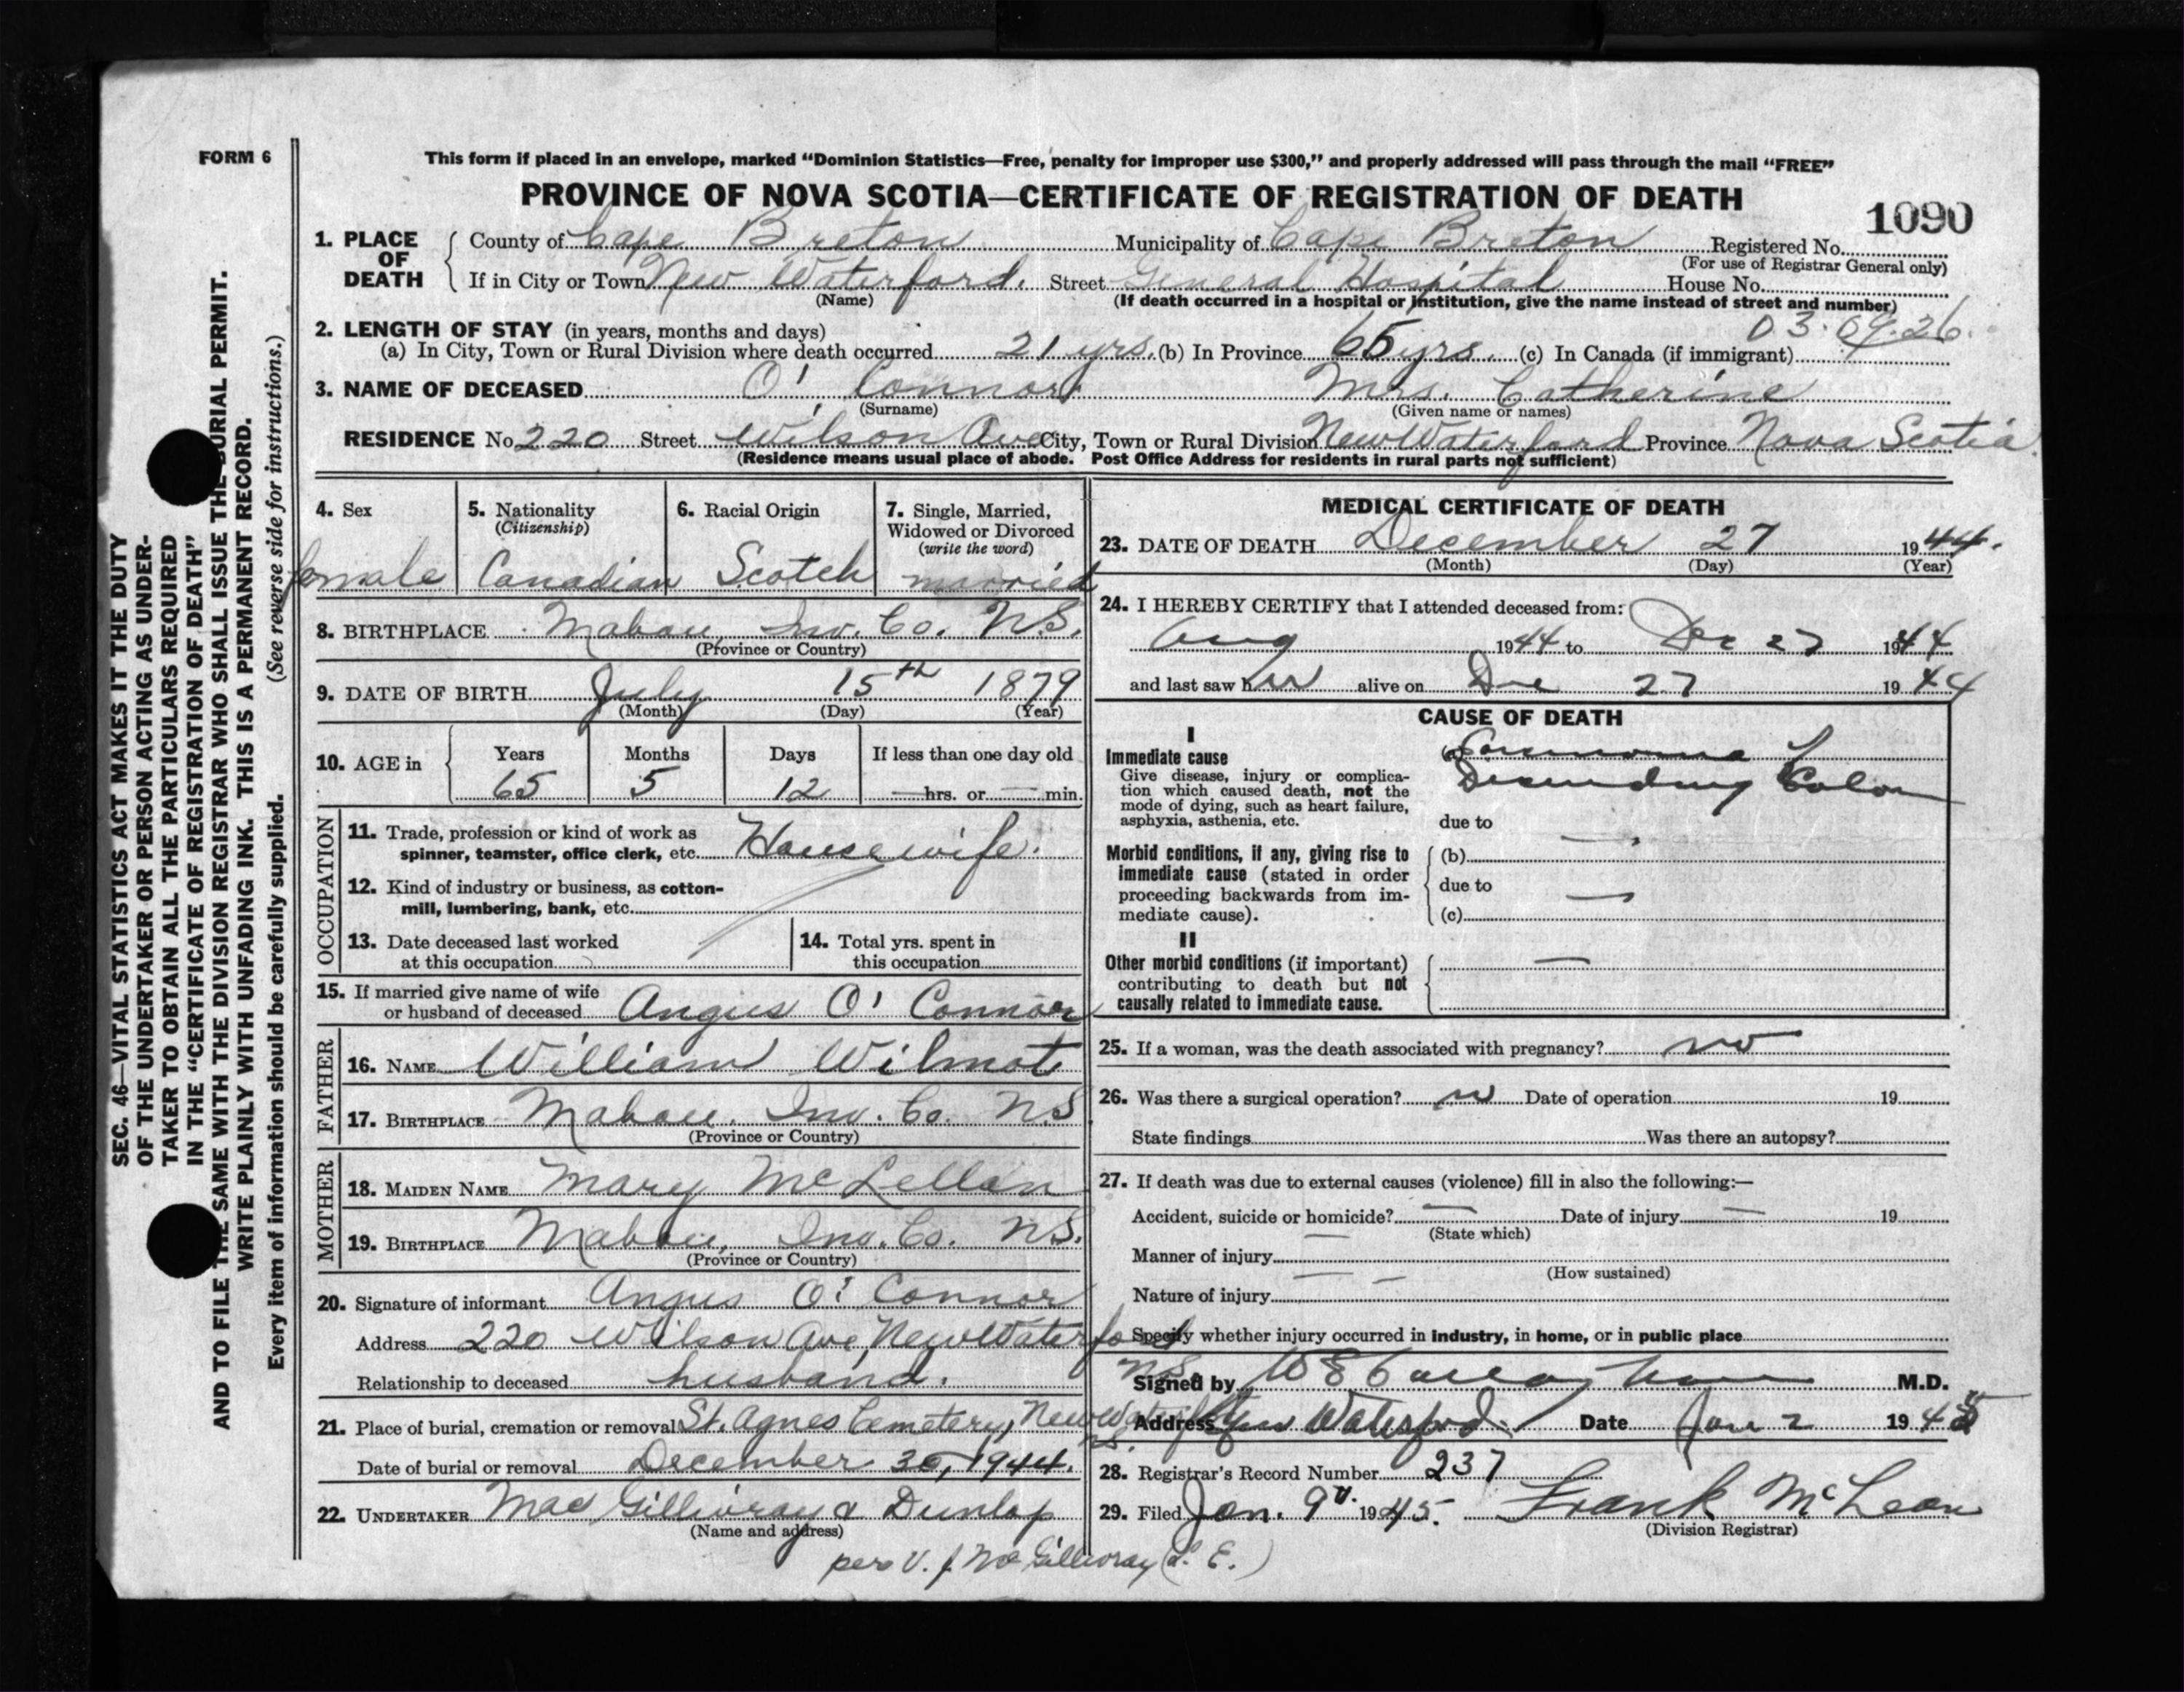 FORM 6
This form if placed in an envelope, marked “Dominion Statistics—Free, penalty for improper use $300,” and properly addressed will pass through the mail “FREE”
PROVINCE OF NOVA SCOTIA—CERTIFICATE OF REGISTRATION OF DEATH
1090
1. PLACE OF DEATH
County of Cape Breton Municipality of Cape Breton Registered No.
(For use of Registrar General only)
If in City or Town New Waterford. Street General Hospital House No.
(Name) (If death occurred in a hospital or institution, give the name instead of street and number)
2. LENGTH OF STAY (in years, months and days) 03.09.26.
(a) In City, Town or Rural Division where death occurred 21 yrs. (b) In Province 65 yrs. (c) In Canada (if immigrant)
3. NAME OF DECEASED O' Connor Mrs. Catherine
(Surname) (Given name or names)
RESIDENCE No. 220 Street Wilson Ave City, Town or Rural Division New Waterford Province Nova Scotia
(Residence means usual place of abode. Post Office Address for residents in rural parts not sufficient)
4. Sex
female
5. Nationality
(Citizenship)
Canadian
6. Racial Origin
Scotch
7. Single, Married,
Widowed or Divorced
(write the word)
married
8. BIRTHPLACE Mabou, Inv. Co. N.S.
(Province or Country)
9. DATE OF BIRTH July 15th 1879
(Month) (Day) (Year)
10. AGE in Years Months Days If less than one day old
65 5 12 — hrs. or — min.
OCCUPATION
11. Trade, profession or kind of work as
spinner, teamster, office clerk, etc. Housewife.
12. Kind of industry or business, as cotton-
mill, lumbering, bank, etc.
13. Date deceased last worked
at this occupation
14. Total yrs. spent in
this occupation
15. If married give name of wife
or husband of deceased Angus O' Connor
FATHER
16. NAME William Wilmot
17. BIRTHPLACE Mabou. Inv. Co. N.S
(Province or Country)
MOTHER
18. MAIDEN NAME Mary McLellan
19. BIRTHPLACE Mabou, Inv. Co. N.S.
(Province or Country)
20. Signature of informant Angus O' Connor
Address 220 Wilson Ave, New Waterford
N.S.
Relationship to deceased husband.
21. Place of burial, cremation or removal St. Agnes Cemetery, New Waterford
N.S.
Date of burial or removal December 30, 1944.
22. UNDERTAKER Mac Gillivray & Dunlop
(Name and address)
per V. J. McGillivray (L. E.)
MEDICAL CERTIFICATE OF DEATH
23. DATE OF DEATH December 27 1944.
(Month) (Day) (Year)
24. I HEREBY CERTIFY that I attended deceased from:
Aug 1944 to Dec 27 1944
and last saw her alive on Dec 27 1944
CAUSE OF DEATH
I
Immediate cause
Give disease, injury or complica-
tion which caused death, not the
mode of dying, such as heart failure,
asphyxia, asthenia, etc.
(a) Carcinoma of
Descending Colon
due to —
Morbid conditions, if any, giving rise to
immediate cause (stated in order
proceeding backwards from im-
mediate cause).
(b)
due to —
(c)
II
Other morbid conditions (if important)
contributing to death but not
causally related to immediate cause.
—
25. If a woman, was the death associated with pregnancy? no
26. Was there a surgical operation? no Date of operation 19
State findings Was there an autopsy?
27. If death was due to external causes (violence) fill in also the following:—
Accident, suicide or homicide? — Date of injury — 19
(State which)
Manner of injury —
(How sustained)
Nature of injury — —
Specify whether injury occurred in industry, in home, or in public place
Signed by M.D.
Address New Waterford. Date Jan 2 1945
28. Registrar's Record Number 237
29. Filed Jan. 9 1945. Frank McLean
(Division Registrar)
SEC. 46—VITAL STATISTICS ACT MAKES IT THE DUTY
OF THE UNDERTAKER OR PERSON ACTING AS UNDER-
TAKER TO OBTAIN ALL THE PARTICULARS REQUIRED
IN THE “CERTIFICATE OF REGISTRATION OF DEATH”
AND TO FILE THE SAME WITH THE DIVISION REGISTRAR WHO SHALL ISSUE THE BURIAL PERMIT.
WRITE PLAINLY WITH UNFADING INK. THIS IS A PERMANENT RECORD.
Every item of information should be carefully supplied. (See reverse side for instructions.)